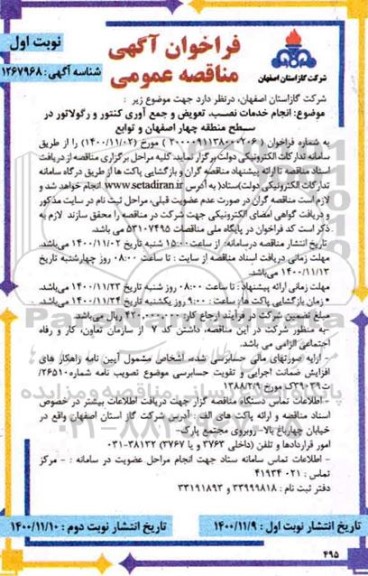 نوبت اول
شناسه آگهی : ۱۲۶۷۹۶۸
فراخوان آگهی
مناقصه عمومی
شرکت گاز استان اصفهان
شرکت گاز استان اصفهان، درنظر دارد جهت موضوع زیر :
موضوع: انجام خدمات نصب، تعویض و جمع آوری کنتور و رگولاتور در
سطح منطقه چهار اصفهان و توابع
به شماره فراخوان (۲۰۰۰۰۹۱۱۳۸۰۰۰۲۰۶) مورخ (۱۴۰۰/۱۱/۰۲) را از طریق
سامانه تدارکات الکترونیکی دولت برگزار نماید. کلیه مراحل برگزاری مناقصه از دریافت
اسناد مناقصه تا ارائه پیشنهاد مناقصه گران و بازگشایی پاکت ها از طریق درگاه سامانه
تدارکات الکترونیکی دولت(ستاد) به آدرس www.setadiran.ir انجام خواهد شد و
لازم است مناقصه گران در صورت عدم عضویت قبلی، مراحل ثبت نام در سایت مذکور
و دریافت گواهی امضای الکترونیکی جهت شرکت در مناقصه را محقق سازند لازم به
ذکر است کد فراخوان در پایگاه ملی مناقصات ۵۳۱۰۷۴۹۵ می باشد.
تاریخ انتشار مناقصه درسامانه، از ساعت ۱۵:۰۰ شنبه تاریخ ۱۴۰۰/۱۱/۰۲ می‌باشد.
مهلت زمانی دریافت اسناد مناقصه از سایت : تا ساعت ۰۸:۰۰ روز چهارشنبه تاریخ
۱۴۰۰/۱۱/۱۳ می‌باشد.
مهلت زمانی ارائه پیشنهاد : تا ساعت ۰۸:۰۰ روز شنبه تاریخ ۱۴۰۰/۱۱/۲۳ می‌باشد
* زمان بازگشایی پاکت ها: ساعت : ۹:۰۰ روز یکشنبه تاریخ ۱۴۰۰/۱۱/۲۴ می باشد.
مبلغ تضمین شرکت در فرآیند ارجاع کار: ریال می باشد
-به منظور شرکت در این مناقصه، داشتن کد ۷ از سازمان تعاون، کار و رفاه
اجتماعی الزامی می باشد.
- ارایه صورتهای مالی حسابرسی شده، اشخاص مشمول آیین نامه راهکار های
افزایش ضمانت اجرایی و تقویت حسابرسی موضوع تصویب نامه شماره ۲۶۵۱۰/
ت۳۹۰۳۹ک مورخ
-اطلاعات تماس دستگاه مناقصه گزار جهت دریافت اطلاعات بیشتر در خصوص
اسناد مناقصه و ارائه پاکت های الف : آدرس شرکت گاز استان اصفهان واقع در
خیابان چهارباغ بالا- روبروی مجتمع پارک-
امور قراردادها و تلفن (داخلی ۳۷۶۳ و یا ۳۷۶۷) ۳۸۱۳۲-۰۳۱
-اطلاعات تماس سامانه ستاد جهت انجام مراحل عضویت در سامانه : - مرکز
تماس : ۰۲۱- ۴۱۹۳۴
دفتر ثبت نام : ۳۳۹۹۹۸۱۸ و ۳۳۱۹۱۸۹۳
تاریخ انتشار نوبت اول : ۱۴۰۰/۱۱/۹
تاریخ انتشار نوبت دوم : ۱۴۰۰/۱۱/۱۰
۴۹۵